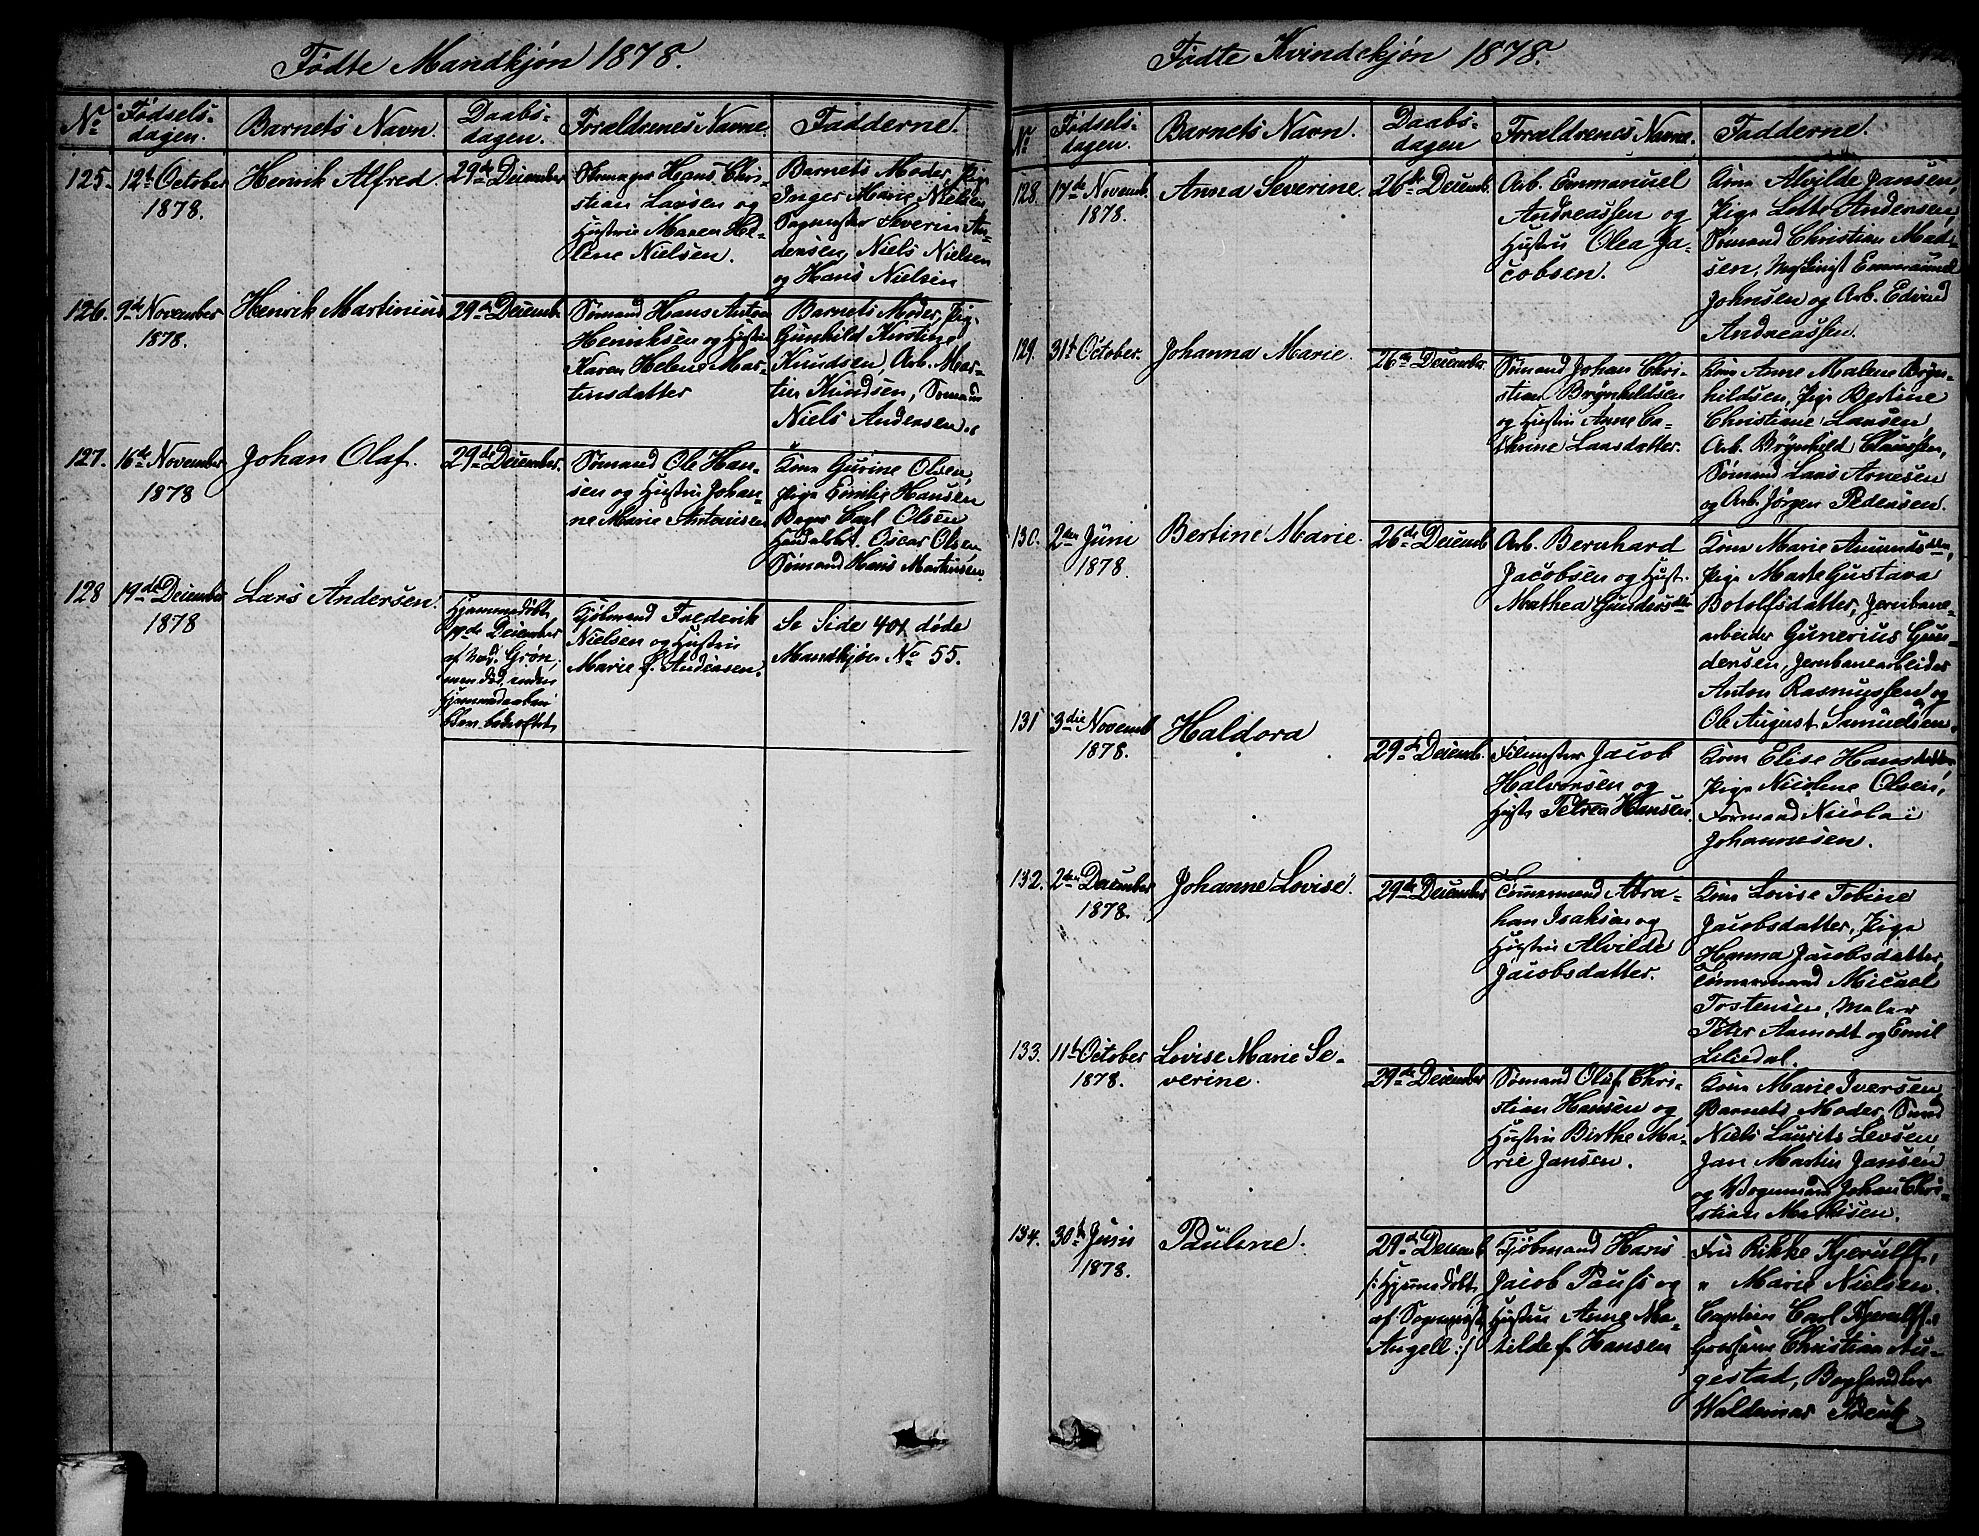 Fødte Mandkjøn 1878.
No
Fødsels-
dagen.
Barnets Navn.
Daabs-
dagen.
Forældrenes Navne.
Fadderne.
125.
12te October
1878.
Henrik Alfred.
29de December
Hans Chri-
stian Larsen og
Hustru Maren He-
lene Nielsen.
Barnets Moder, Pige
Inger Marie Nielsen
Severin An-
dersen, Niels Nielsen
og Hans Nielsen
126.
9de November
1878.
Henrik Martinius
29de Decemb.
Sømand Hans Anton
Henriksen og Hustru
Karen Helene Mar-
tinsdatter
Barnets Moder, Pig.
Gunhild Kirstine
Knudsen, Arb. Mar-
tin Knudsen, Sømand
Niels Andersen.
127.
16de November
1878
Johan Olaf.
29de December.
Sømand Ole Han-
sen og Hustru Johan-
ne Marie Antonisen
Kone Gurine Olsen,
Pige Emilie Hansen
Carl Olsen
Oscar Olsen
Sømand Hans Martinsen
128
19de December
1878
Lars Andersen.
Hjemmedøbt
de December
af Grøn,
men død, inden
Hjemmedaaben
blev bekræftet.
Kjøbmand Frederik
Nielsen og Hustru
Marie f. Andersen.
Se Side 401 døde
Mandkjøn No 55.
Fødte Kvindekjøn 1878.
No
Fødsels-
dagen.
Barnets Navn.
Daabs-
dagen
Forældrenes Navne.
Fadderne.
128.
17de Novemb.
1878.
Anna Severine.
26de Decemb.
Arb. Emmanuel
Andreassen og
Hustru Olea Ja-
cobsen.
Kone Alvilde Jansen,
Pige Lotte Andersen,
Sømand Christian Mad-
sen, Emmanuel
Johnsen og Arb. Edvard
Andreassen.
129.
31te October.
Johanna Marie.
26de December
Sømand Johan Chri-
stian Brynhildsen
og Hustru Anne Ca-
thrine Larsdatter.
Kone Anne Malene Bryn-
hildsen, Pige Bertine
Christiane Larsen,
Arb. Brynhild Claussen,
Sømand Lars Arnesen
og Arb. Jørgen Pedersen.
130.
2den Juni
1878.
Bertine Marie.
26de Decemb
Arb. Bernhard
Jacobsen og Hust.
Mathea Gundersdtr
Kone Marie Amundsdatter,
Pige Marte Gustava
Botolfsdatter, Jernbane-
arbeider Gunerius Gun-
dersen, Jernbanearbeider
Anton Rasmussen og
Ole August Samuelsen.
131
3die Novemb
1878.
Haldora
29de Decemb.
Jacob
Halvorsen og
Hustr Petrea Hansen.
Kone Elise Hansdatter
Pige Nicoline Olsen,
Formand Nicolai
Johannesen.
132.
2den December
1878.
Johanne Lovise.
29de December
Tømmermand Abra-
ham Isaksen og
Hustru Alvilde
Jacobsdatter.
Kone Lovise Tobine
Jacobsdatter, Pige
Hanna Jacobsdatter,
Tømmermand Micael
Tostensen, Maler
Peter Aamodt og Emil
Liliedal.
133.
11te October
1878.
Lovise Marie Se-
verine.
29de December
Sømand Olaf Chri-
stian Hansen og
Hustru Birthe Ma-
rie Jansen.
Kone Marie Iversen,
Barnets Moder, Sømd
Niels Laurits Levsen,
Jan Martin Jansen
og Vognmand Johan Chri-
stian Mathisen.
134.
30te Juni
1878.
Pauline.
29de Decemb
/: Hjemmedøbt
af Sogneprest
Angell :/
Kjøbmand Hans
Jacob Paus og
Hustru Anne Ma-
tilde f. Hansen
Fru Rikke Kjerulff,
" Marie Nielsen.
Captein Carl Kjerulff,
Christian Au-
gestad, Boghandler
Waldemar